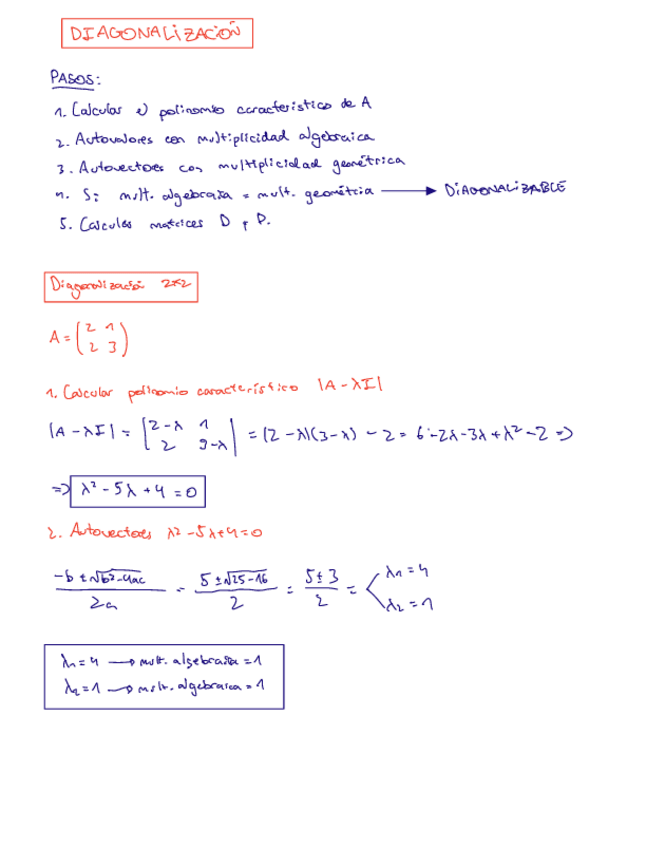 DIAGONALIZACIÓN
PASOS:
1. Calcular el polinomio característico de A
2. Autovalores con multiplicidad algebraica
3. Autovectores con multiplicidad geométrica
4. Si mult. algebraica = mult. geométrica → DIAGONALIZABLE
5. Calcular matrices D y P.
Diagonalización 2x2
A = (2 1
2 3)
1. Calcular polinomio característico |A - λI|
|A - λI| = |2-λ 1
2 3-λ| = (2-λ)(3-λ) - 2 = 6-2λ-3λ+λ²-2 =>
=> λ² - 5λ + 4 = 0
2. Autovectores λ²-5λ+4=0
-b ±√b²-4ac / 2a = 5±√25-16 / 2 = 5±3 / 2 = λ1 = 4
λ2 = 1
λ1 = 4 → mult. algebraica = 1
λ2 = 1 → mult. algebraica = 1